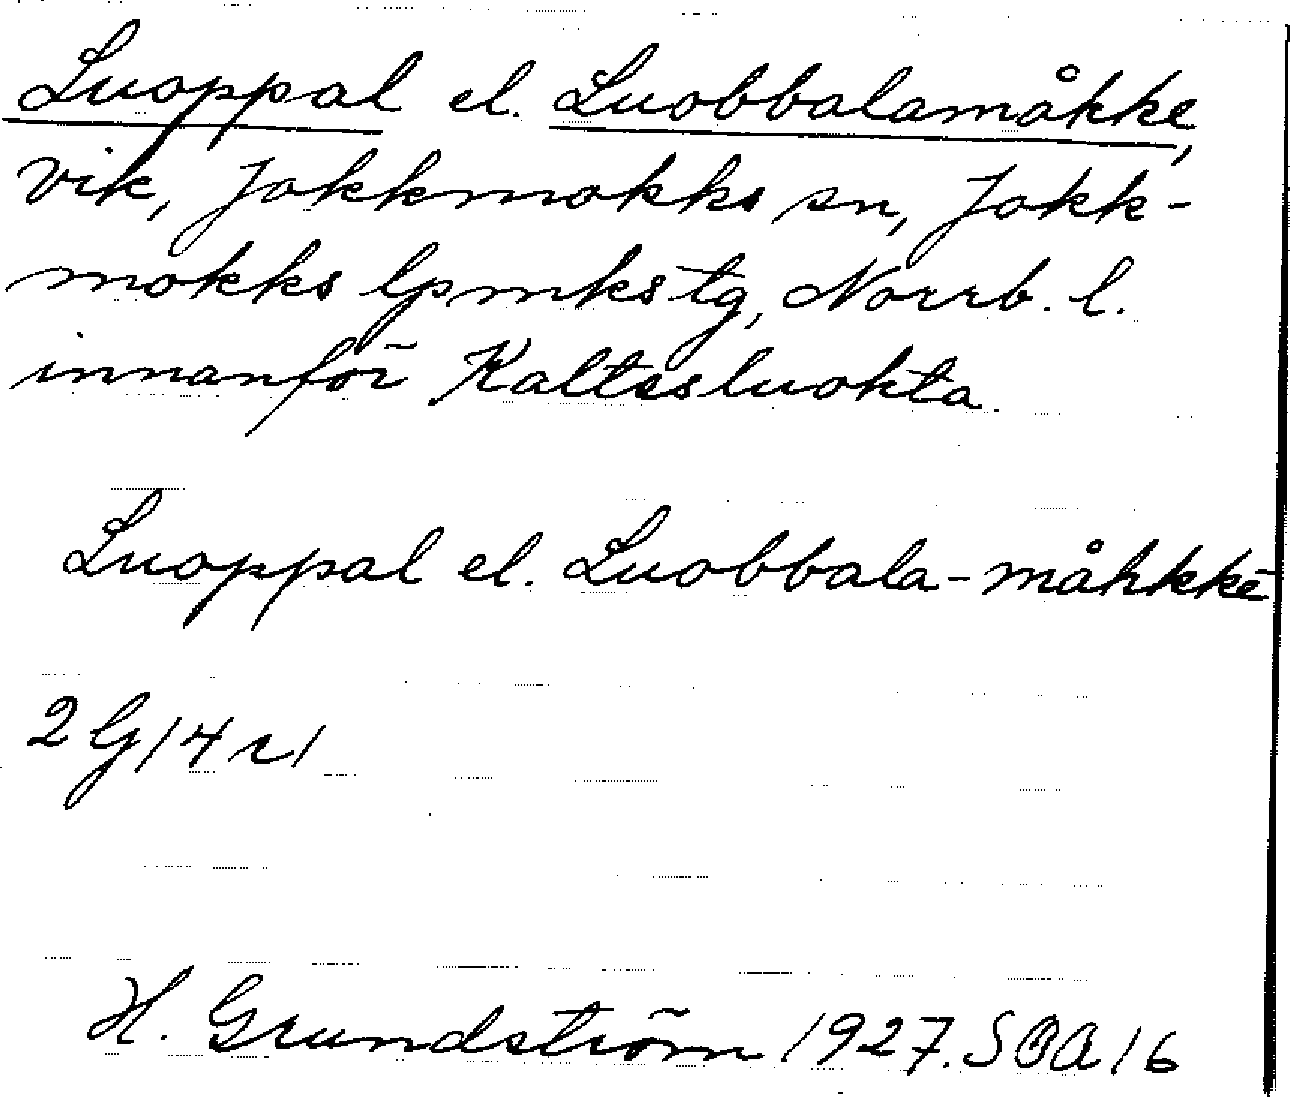 Luoppal el. Luobbalamåkke,
vik, Jokkmokks sn, Jokk-
mokks lpmkstg, Norrb. l.
innanför Kaltssluokta.
Luoppal el. Luobbala-måhkkē
H. Grundström 1927. SOA 16